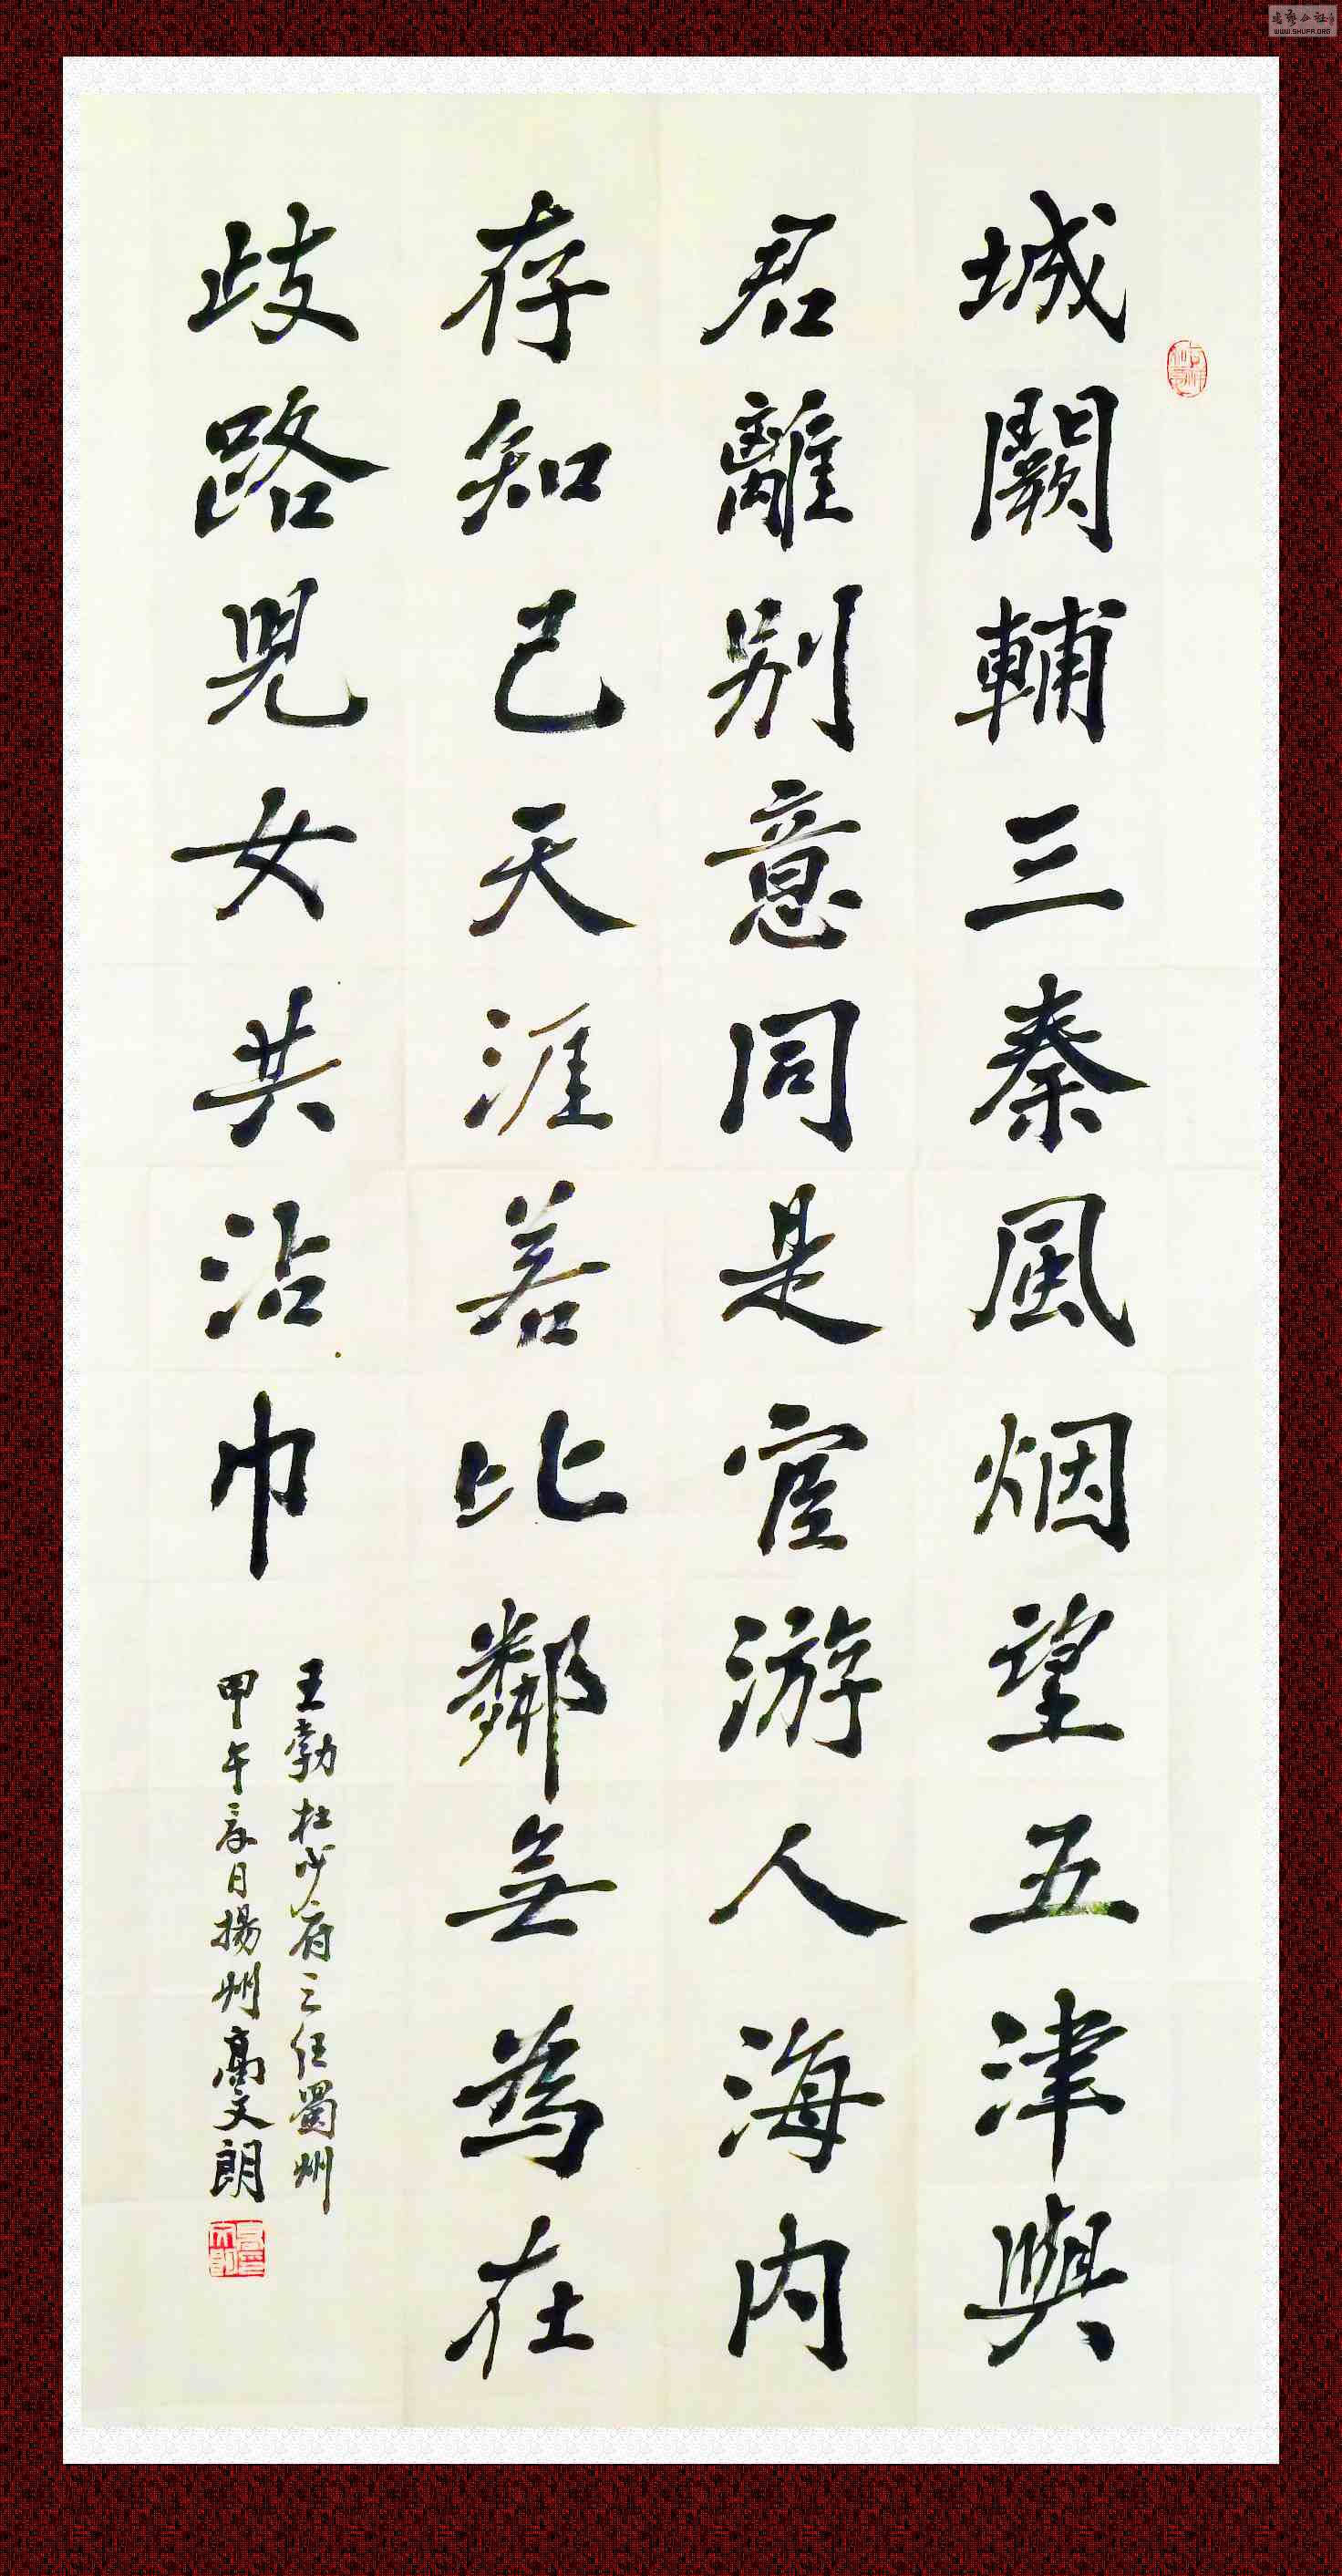 城闕輔三秦風烟望五津與
君離别意同是宦游人海内
存知己天涯若比鄰無為在
歧路兒女共沾巾
王勃杜少府之任蜀州
甲午春日揚州高文朗
WWW.SHUFA.ORG